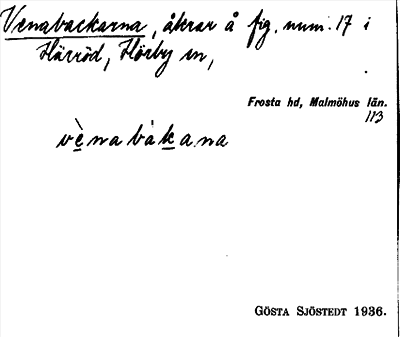 Venabackarna, åkrar å fig. num. 17 i
Härröd, Hörby sn,
Frosta hd, Malmöhus län.
113
vènabàkana
GÖSTA SJÖSTEDT 1936.